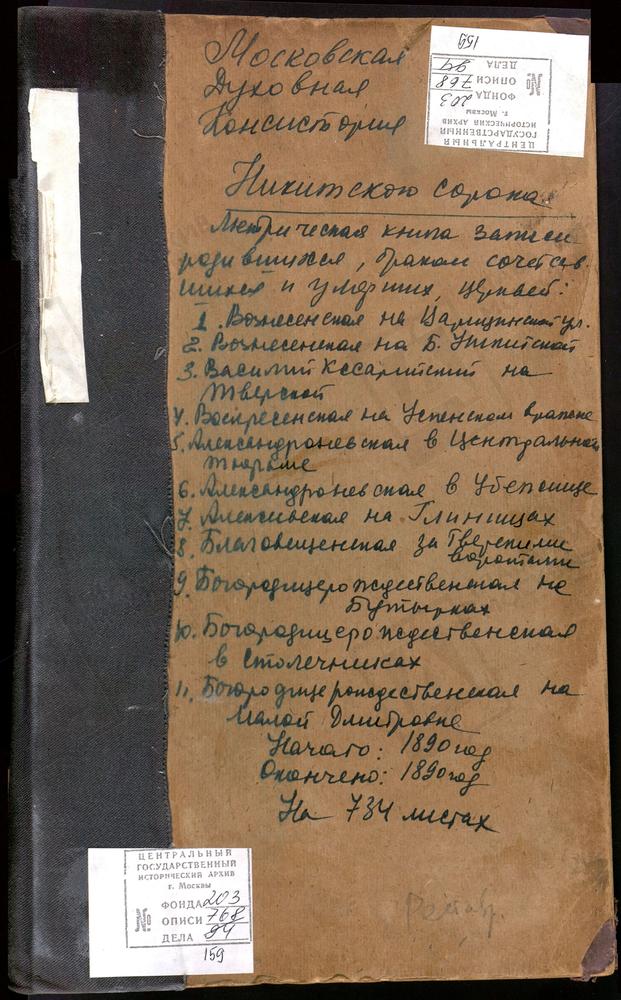 Московская
Духовная
Консистория
Никитского сорока
Метрическая книга записи
родившихся, браком сочетав
шихся и умерших, церквей:
1. Вознесенская на Царицынской ул.
2. Вознесенская на Б. Никитской
3. Василий Кесарийский на
Тверской
4. Воскресенская на Успенском вражке
5. Александроневская в Центральной
тюрьме
6. Александроневская в Убежище
7. Алексиевская на Глинищах
8. Благовещенская за Тверскими
воротами
9. Богородицерождественская на
Бутырках
10. Богородицерождественская
в Столечниках
11. Богородицерождественская на
Малой Дмитровке
Начато: 1890 год
Окончено: 1890 год
На 734 листах
Реставр.
ЦЕНТРАЛЬНЫЙ
ГОСУДАРСТВЕННЫЙ
ИСТОРИЧЕСКИЙ АРХИВ
г. Москвы
ФОНДА 203
ОПИСИ 768
ДЕЛА 94
159
ЦЕНТРАЛЬНЫЙ
ГОСУДАРСТВЕННЫЙ
ИСТОРИЧЕСКИЙ АРХИВ
г. Москвы
ФОНДА 203
ОПИСИ 768
ДЕЛА 94
159